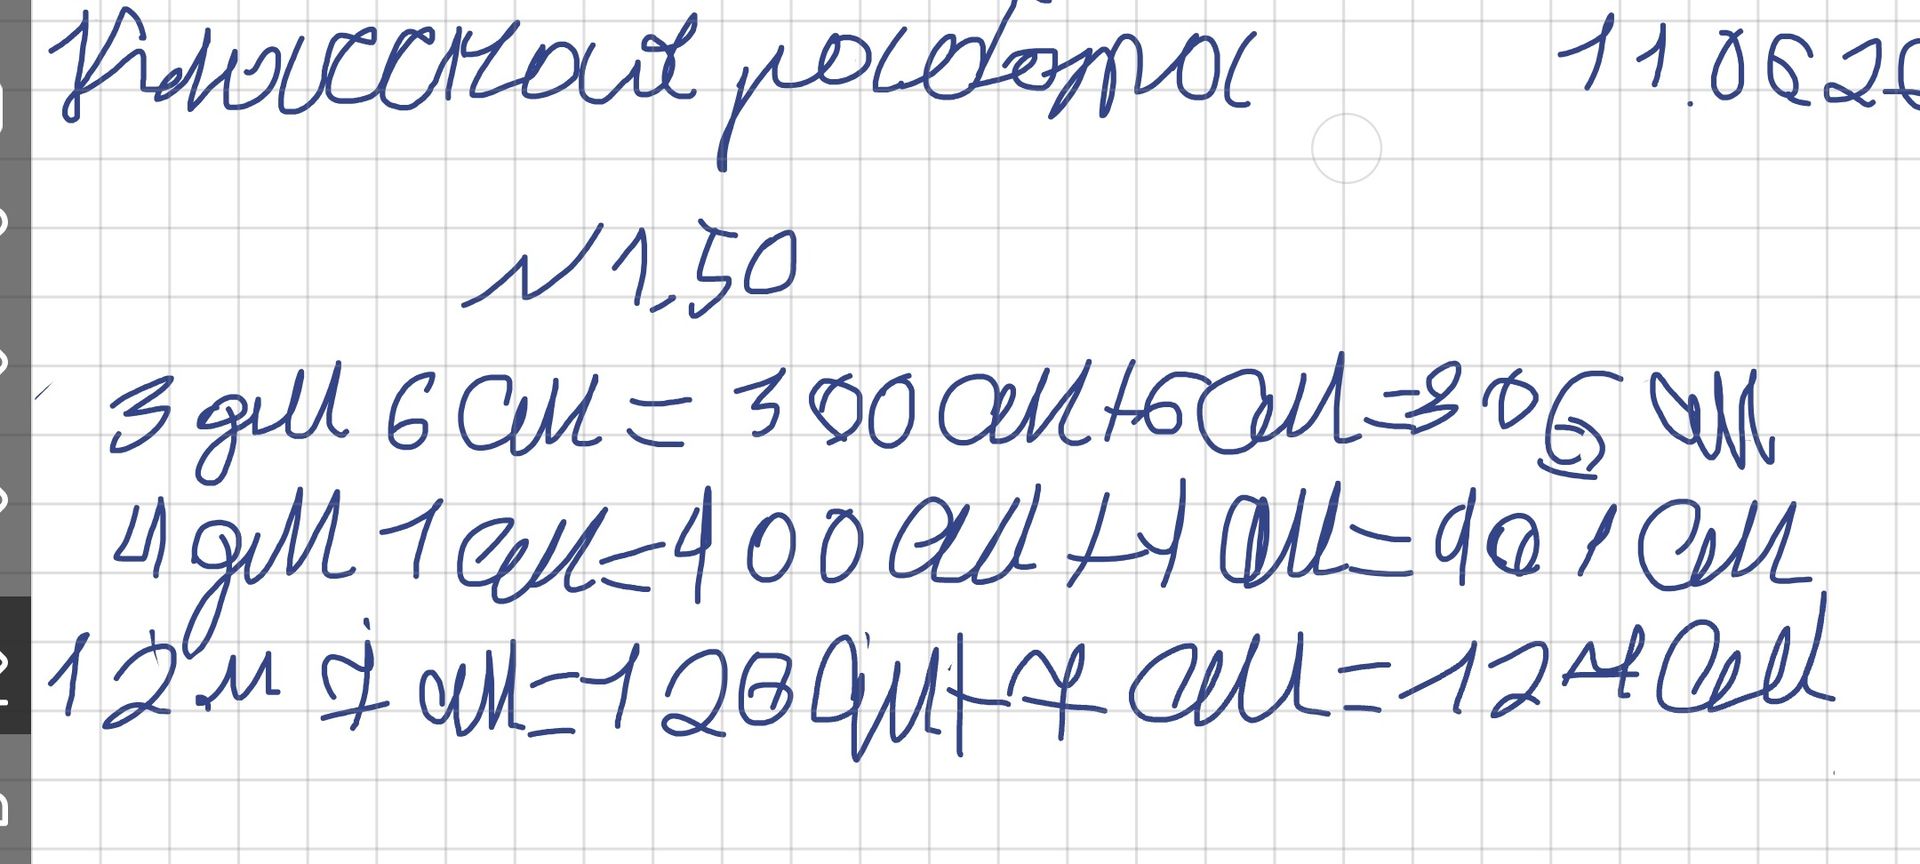 Классная работа 11.0626
N 1.50
3 дм 6 см = 300 см + 6 см = 306 см
4 дм 1 см = 400 см + 1 см = 401 см
12 м 7 см = 120 дм + 7 см = 127 см